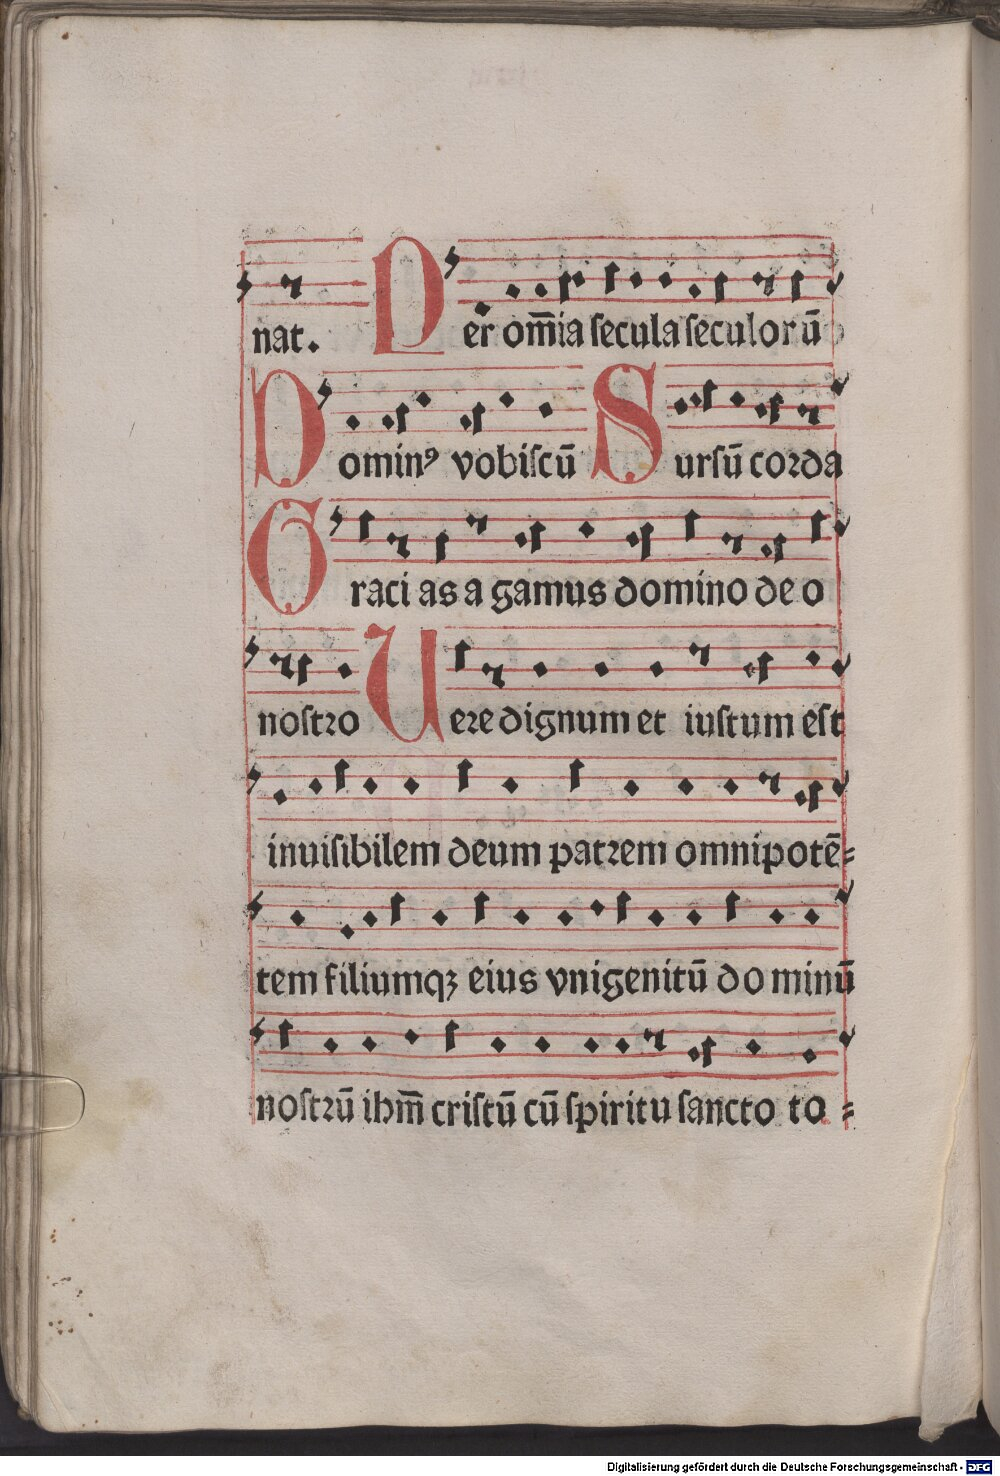 nat. Per om̅ia secula seculorū
Dominꝰ vobiscū Sursū corda
Graci as a gamus domino de o
nostro Uere dignum et iustum est
inuisibilem deum patrem omnipotē=
tem filiumqꝫ eius vnigenitū do minū
nostrū ihm̅ cristū cū spiritu sancto to=
Digitalisierung gefördert durch die Deutsche Forschungsgemeinschaft - DFG